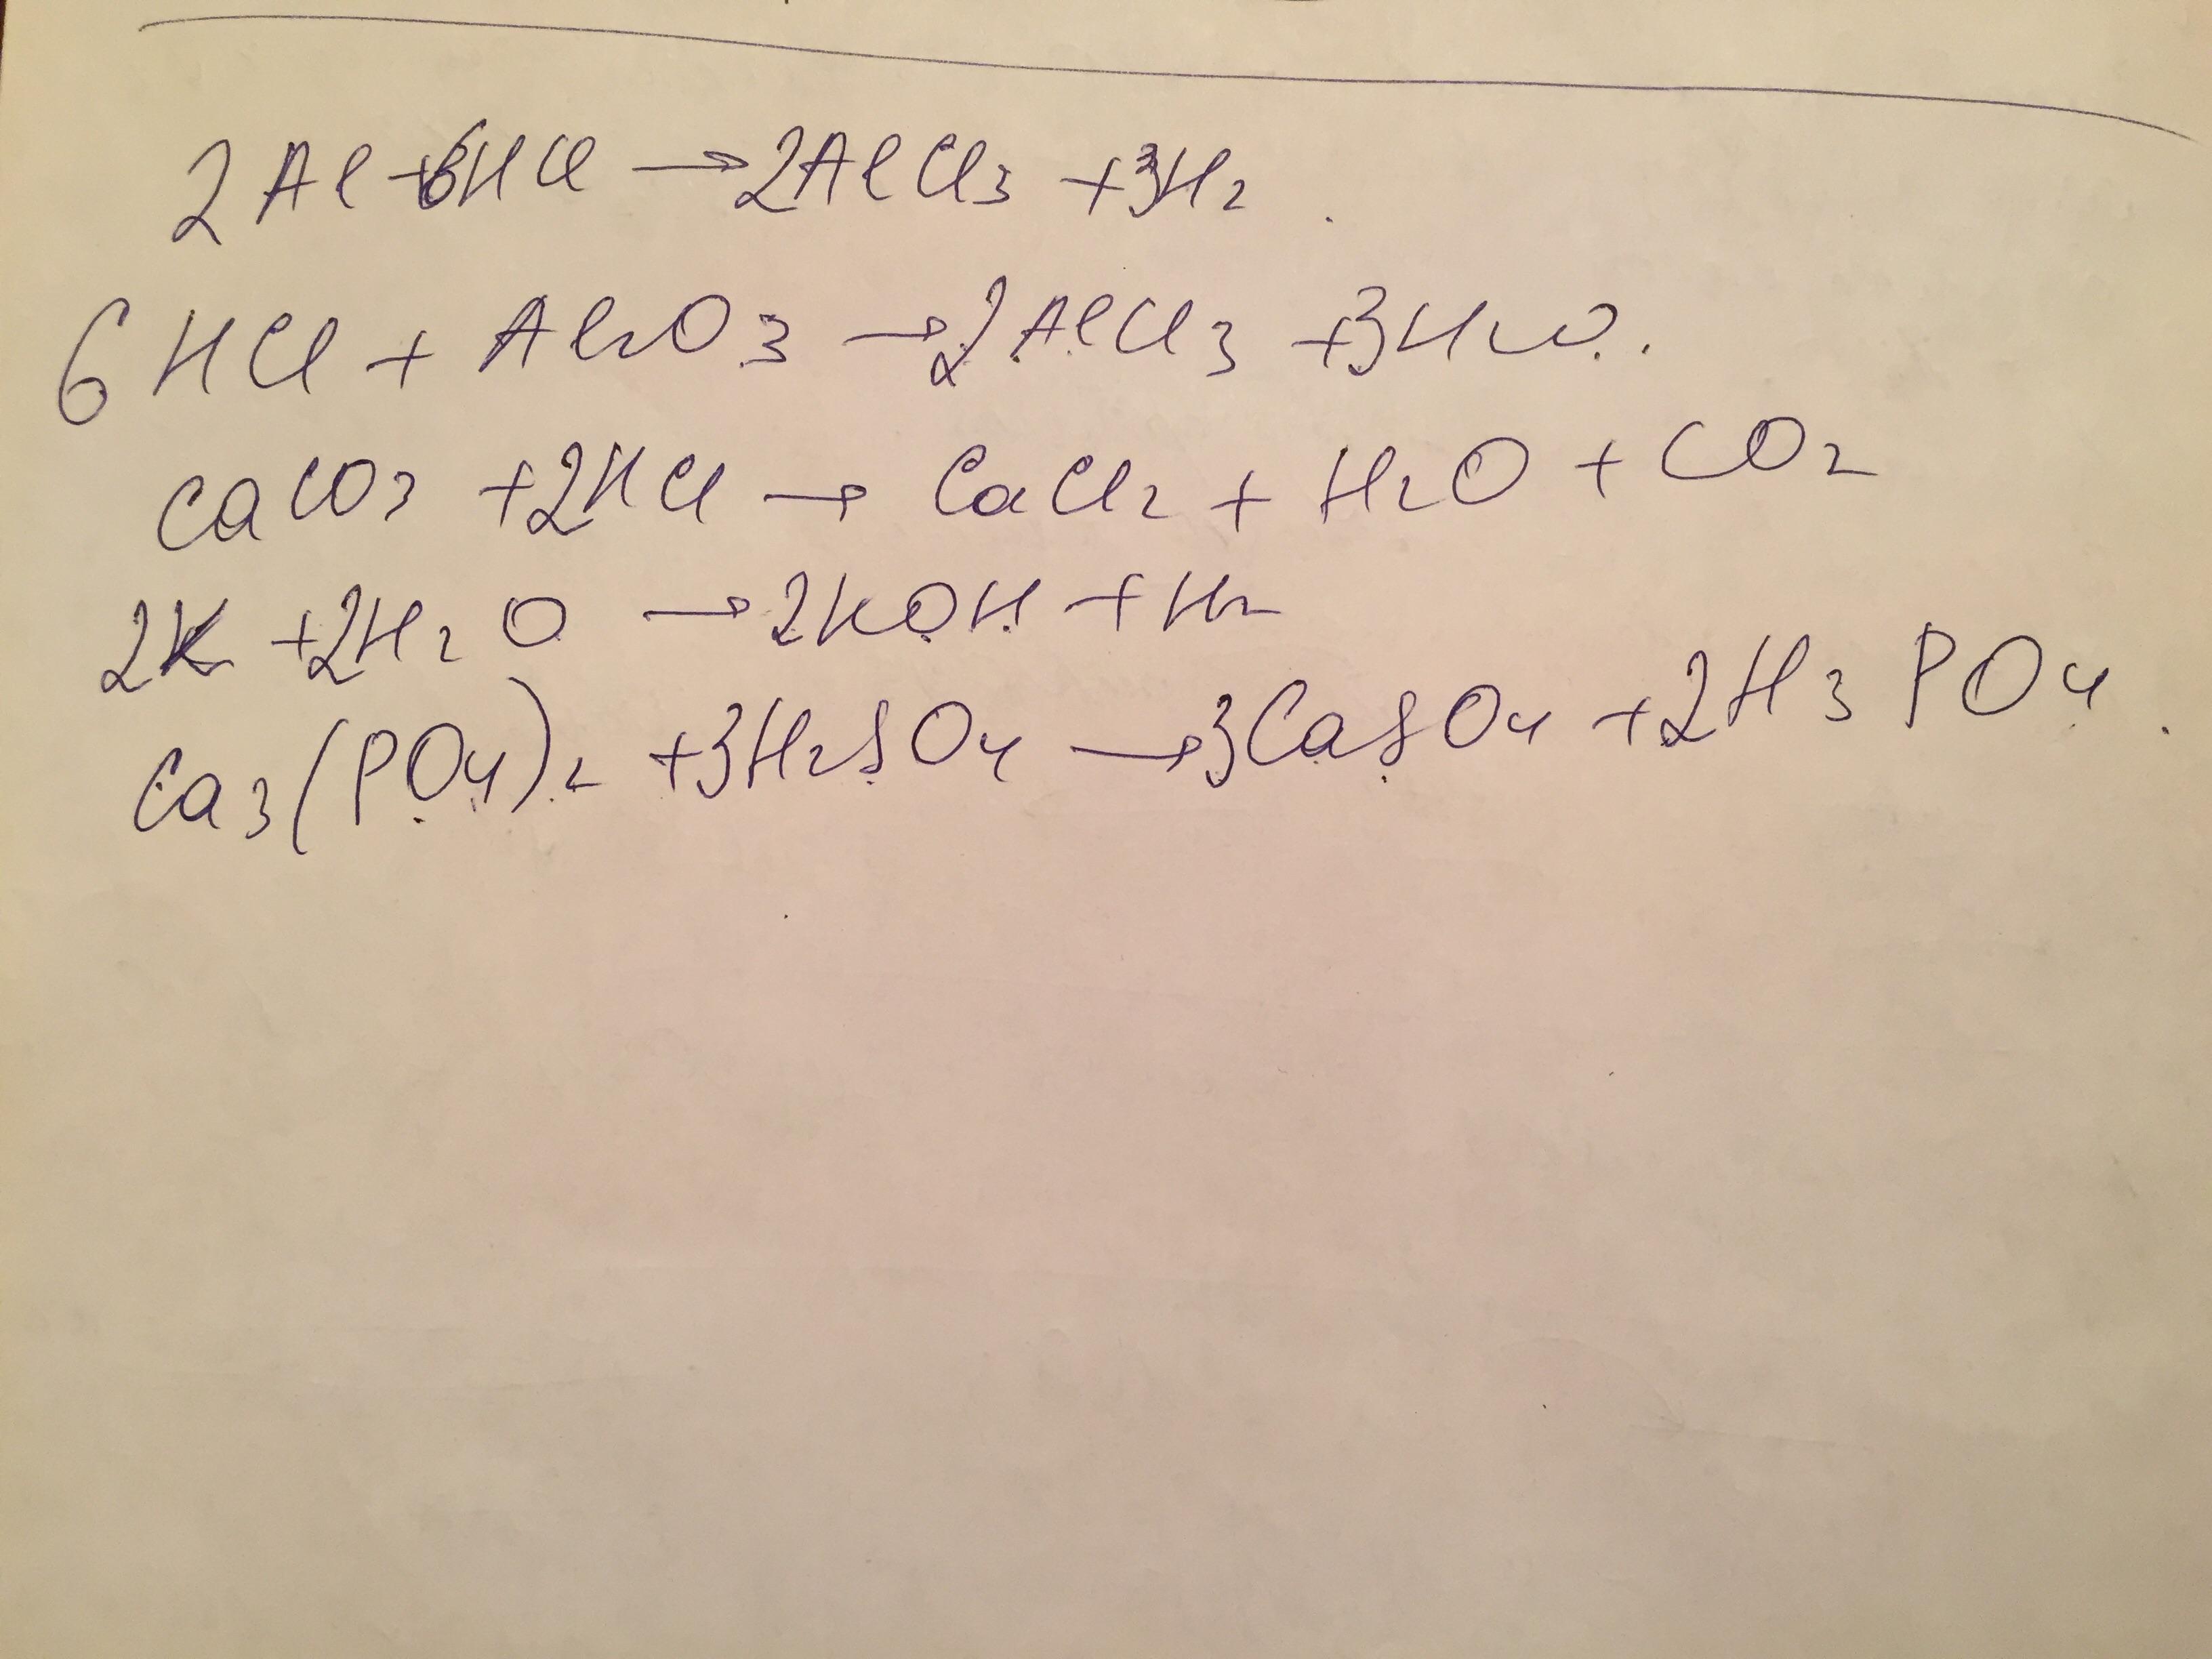 2Al + 6HCl → 2AlCl3 + 3H2.
6HCl + Al2O3 → 2AlCl3 + 3H2O.
CaCO3 + 2HCl → CaCl2 + H2O + CO2
2K + 2H2O → 2KOH + H2
Ca3(PO4)2 + 3H2SO4 → 3CaSO4 + 2H3PO4.